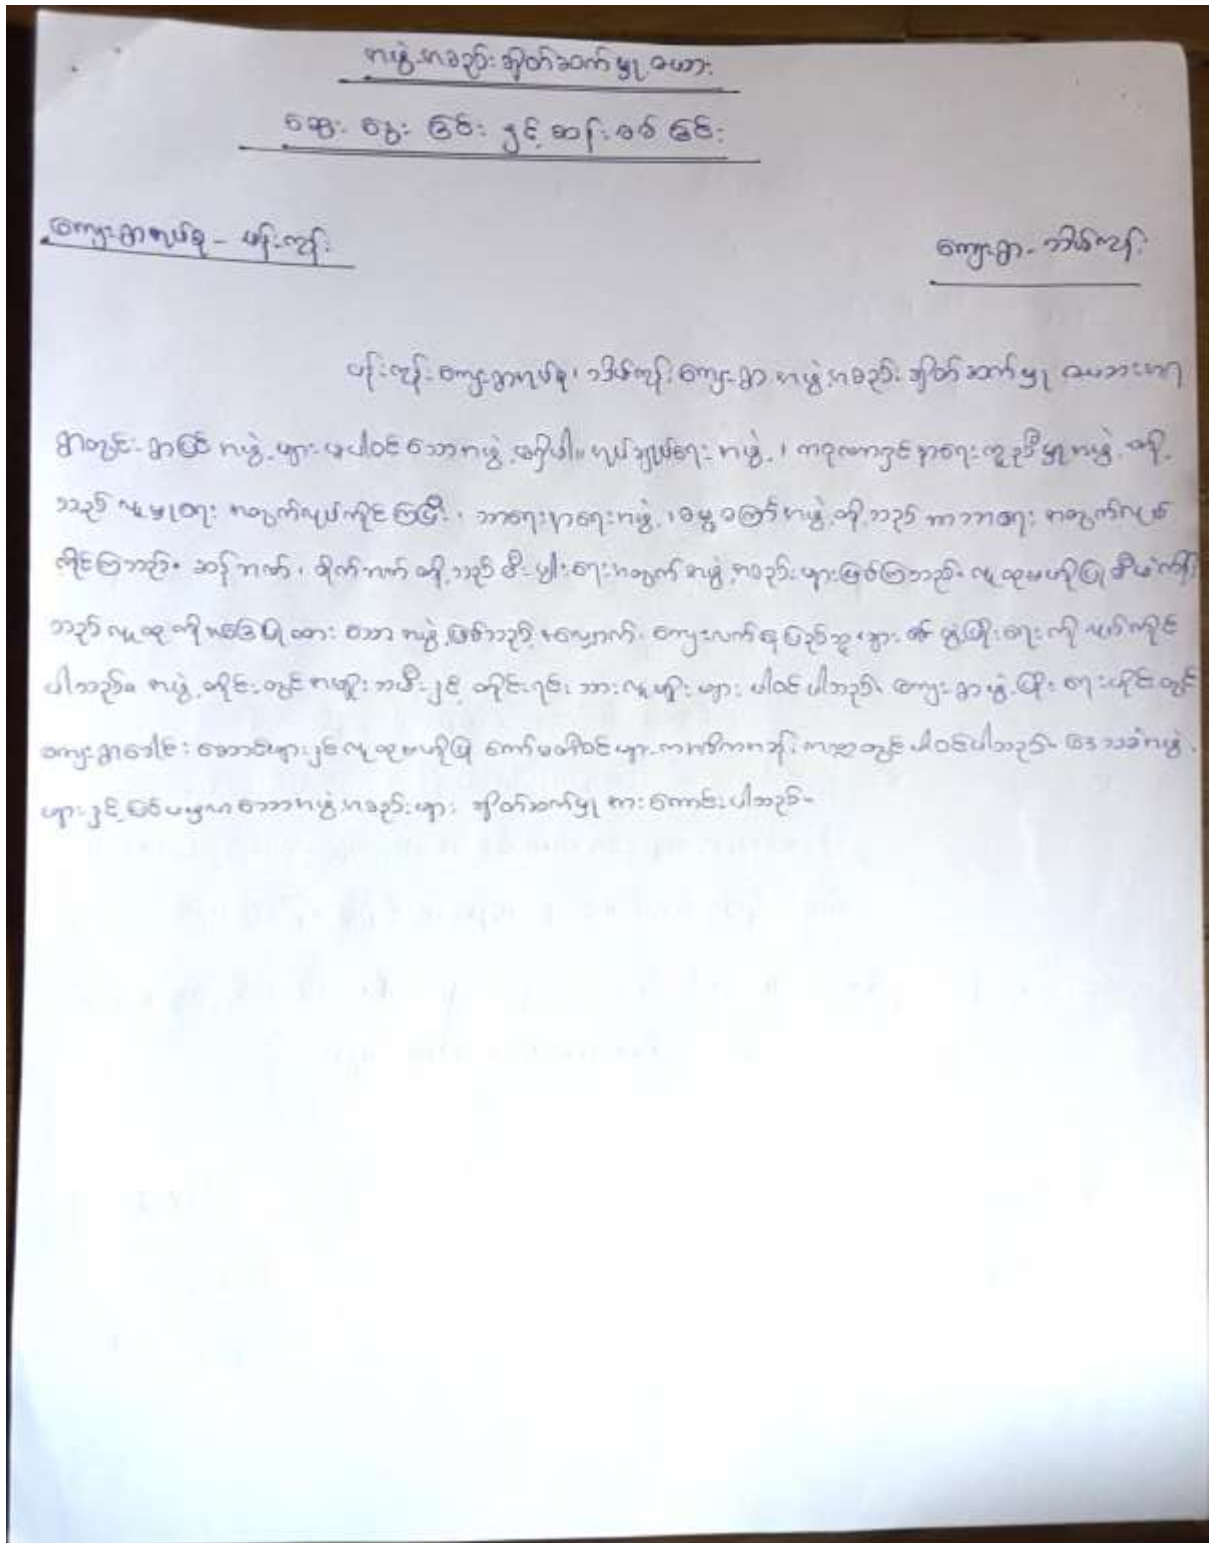 အဖွဲ့အစည်းချိတ်ဆက်မှုဇယား
ဆွေးနွေးခြင်းနှင့်ဆန်းစစ်ခြင်း
ကျေးရွာအုပ်စု - ပန်းကုန်း
ကျေးရွာ - သိမ်ကုန်း
ပန်းကုန်းကျေးရွာအုပ်စု၊ သိမ်ကုန်းကျေးရွာအဖွဲ့အစည်းချိတ်ဆက်မှုဇယားအရ
ရွာတွင်းရွာပြင်အဖွဲ့များမပါဝင်သောအဖွဲ့မရှိပါ။ အုပ်ချုပ်ရေးအဖွဲ့၊ ကရုဏာရှင်နာရေးကူညီမှုအဖွဲ့တို့
သည်လူမှုရေးအတွက်လုပ်ကိုင်ကြပြီး၊ သာရေးနာရေးအဖွဲ့၊ ဓမ္မစကြာအဖွဲ့တို့သည်ဘာသာရေးအတွက်လုပ်
ကိုင်ကြသည်။ ဆန်ဘဏ်၊ စိုက်ဘဏ်တို့သည်စီးပွါးရေးအတွက်အဖွဲ့အစည်းများဖြစ်ကြသည်။ လူထုဗဟိုပြုစီမံကိန်း
သည်လူထုကိုအခြေပြုထားသောအဖွဲ့ဖြစ်သည့်အလျှောက် ကျေးလက်နေပြည်သူများ၏ဖွံ့ဖြိုးရေးကိုလုပ်ကိုင်
ပါသည်။ အဖွဲ့တိုင်းတွင်အမျိုးသမီးနှင့်တိုင်းရင်းသားလူမျိုးများပါဝင်ပါသည်။ ကျေးရွာဖွံ့ဖြိုးရေးပိုင်းတွင်
ကျေးရွာခေါင်းဆောင်များနှင့်လူထုဗဟိုပြုကော်မတီဝင်များကအဓိကအခန်းကဏ္ဍတွင်ပါဝင်ပါသည်။ ဒေသခံအဖွဲ့
များနှင့်ပြင်ပမှလာသောအဖွဲ့အစည်းများချိတ်ဆက်မှုအားကောင်းပါသည်။